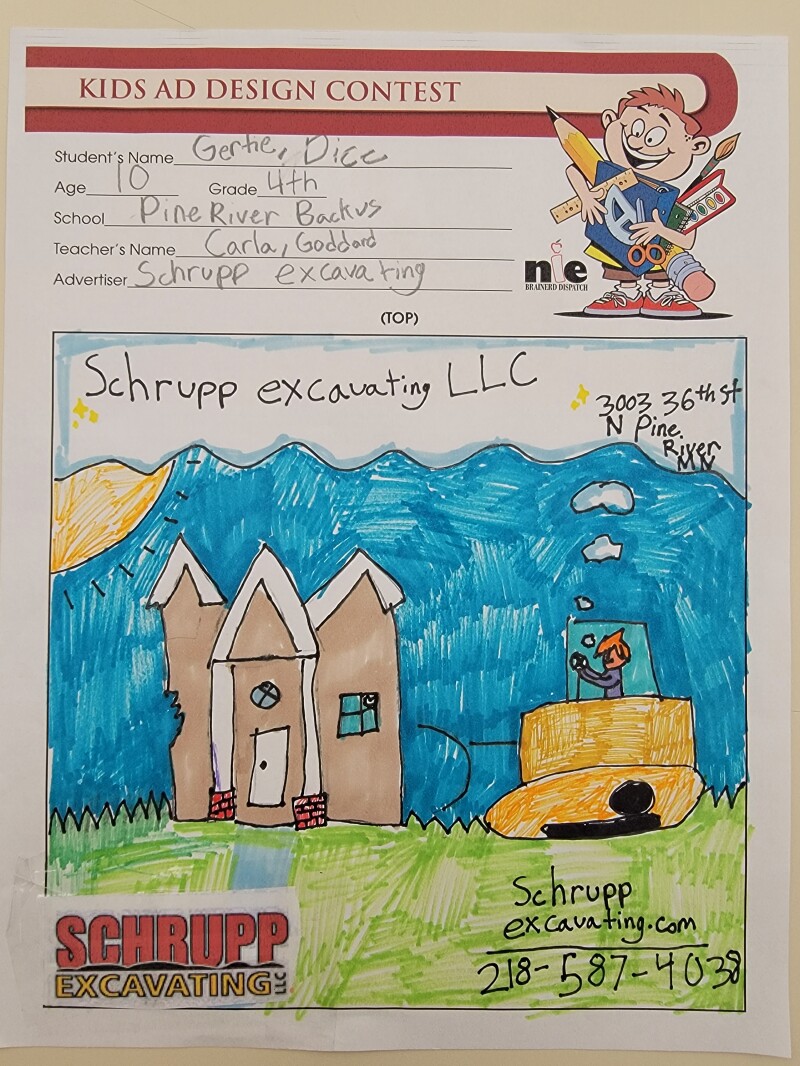 KIDS AD DESIGN CONTEST
Student's Name Gertie, Dice
Age 10 Grade 4th
School Pine River Backus
Teacher's Name Carla, Goddard
Advertiser Schrupp excavating
nie
BRAINERD DISPATCH
(TOP)
Schrupp excavating LLC
3003 36th St
N Pine.
River
MN
SCHRUPP
EXCAVATING LLC
Schrupp
excavating.com
218-587-4038